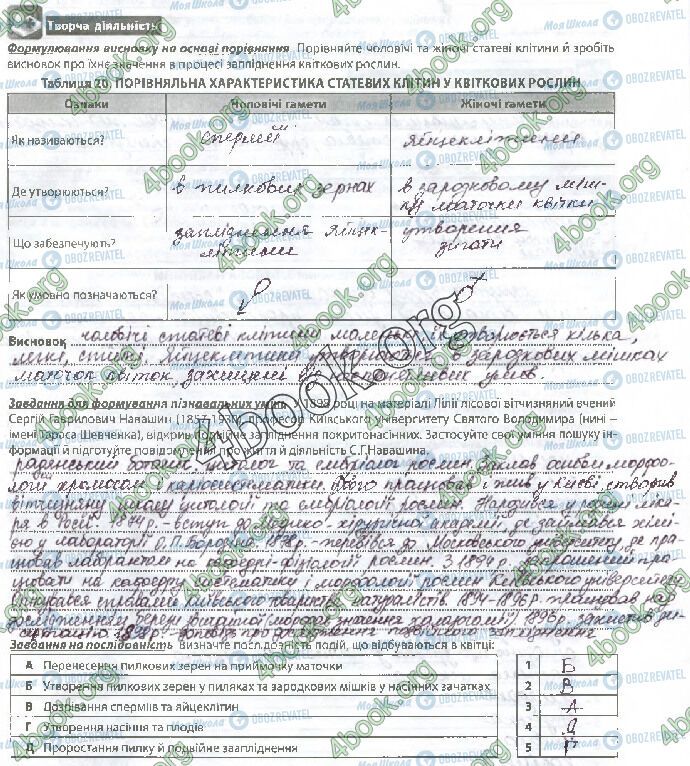 Творча діяльність
Формулювання висновку на основі порівняння. Порівняйте чоловічі та жіночі статеві клітини й зробіть
висновок про їхнє значення в процесі запліднення квіткових рослин.
Таблиця 20. ПОРІВНЯЛЬНА ХАРАКТЕРИСТИКА СТАТЕВИХ КЛІТИН У КВІТКОВИХ РОСЛИН
Ознаки Чоловічі гамети Жіночі гамети
Як називаються? спермії яйцеклітини
Де утворюються? в пилкових зернах в зародковому міш-
ку маточки квітки
Що забезпечують? запліднення яйцек- утворення
літини зиготи
Як умовно позначаються? ♂ ♀
Висновок чоловічі статеві клітини маленькі, їх утворюється кілька,
яйцеклітини утворюються в зародкових мішках
маточок квіток, захищені від умов.
Завдання для формування пізнавальних умінь. У 1898 році на матеріалі Лілії лісової вітчизняний вчений
Сергій Гаврилович Навашин (1857-1930), професор Київського університету Святого Володимира (нині –
імені Тараса Шевченка), відкрив подвійне запліднення покритонасінних. Застосуйте свої уміння пошуку ін-
формації й підготуйте повідомлення про життя й діяльність С.Г.Навашина.
радянський ботанік, цитолог та ембріолог рослин. заклав основи морфо-
логії хромосом і каріосистематики. Довго працював і жив у Києві, створив
вітчизняну школу цитології та ембріології рослин. Народився у сім'ї ліка-
ря в Росії. 1874 р. – вступ до Медико-хірургічної академії, де займався хімі-
єю у лабораторії О.П. Бородіна. 1878 р. – перейшов до Московського університету, де пра-
цював лаборантом на кафедрі фізіології рослин. З 1894 р. запрошений пра-
цювати на кафедру систематики і морфології рослин Київського університету
справами Київського товариства натуралістів. 1894-1896 р. працював над
дослідженням берези (морфологія халазогамії). 1896 р. захистив ди-
сертацію. 1898 р. – доповідь про подвійного запліднення
Завдання на послідовність. Визначте послідовність подій, що відбуваються в квітці:
А Перенесення пилкових зерен на приймочку маточки 1 Б
Б Утворення пилкових зерен у пиляках та зародкових мішків у насінних зачатках 2 В
В Дозрівання сперміїв та яйцеклітин 3 А
Г Утворення насіння та плодів 4 Д
Д Проростання пилку й подвійне зааплiднення 5 Г